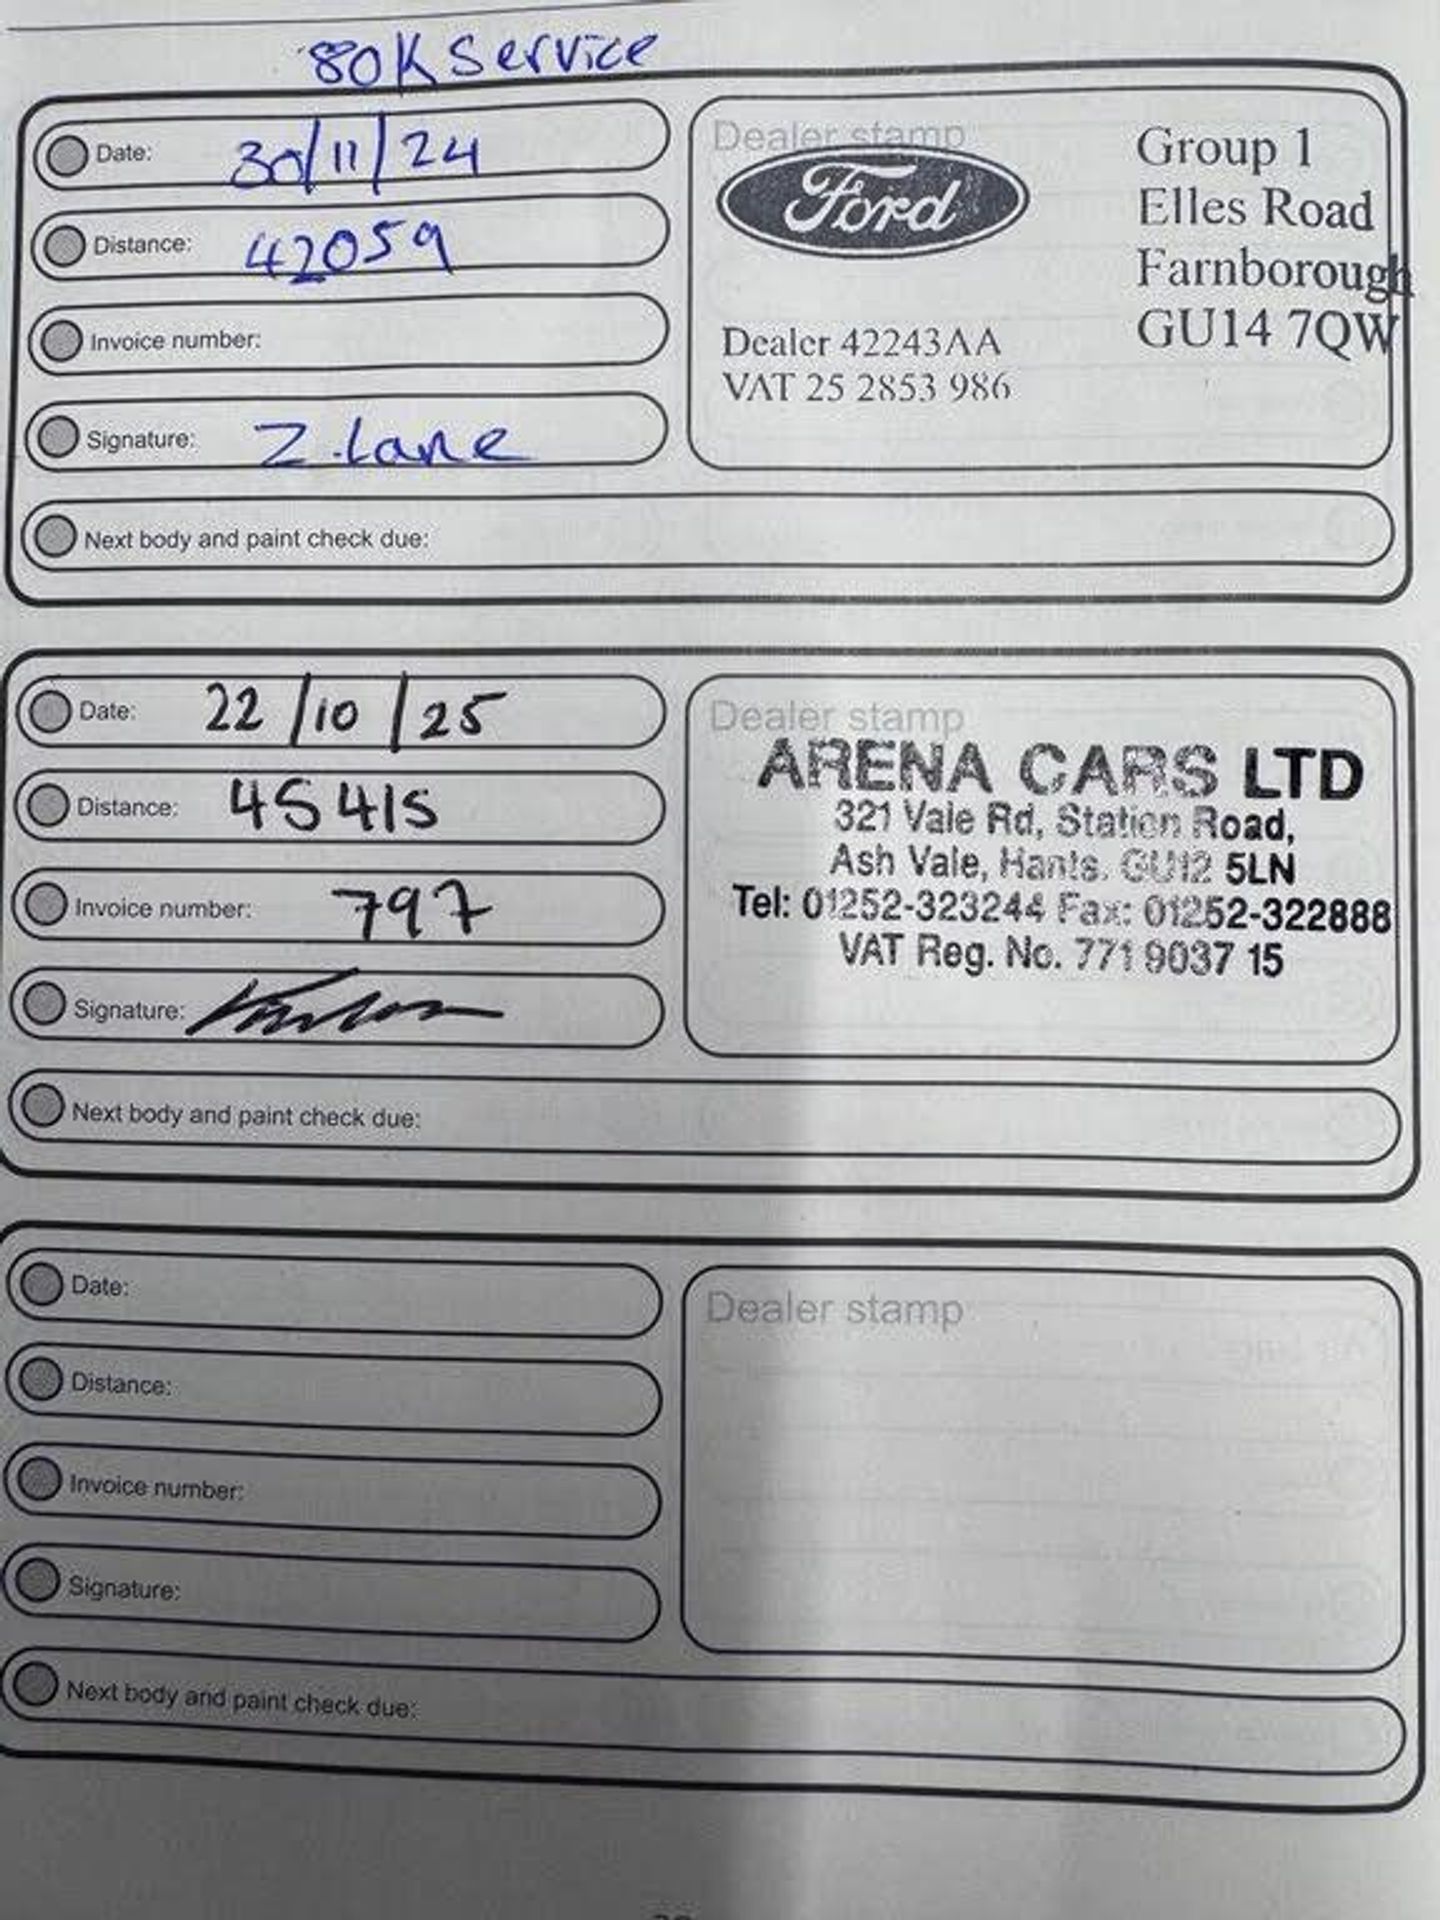 80K Service
Date: 30/11/24
Distance: 42059
Invoice number:
Signature: Z.Lane
Next body and paint check due:
Dealer stamp
Ford
Group 1
Elles Road
Farnborough
GU14 7QW
Dealer 42243AA
VAT 25 2853 986
Date: 22/10/25
Distance: 45415
Invoice number: 797
Signature:
Next body and paint check due:
Dealer stamp
ARENA CARS LTD
321 Vale Rd, Station Road,
Ash Vale, Hants. GU12 5LN
Tel: 01252-323244 Fax: 01252-322888
VAT Reg. No. 771 9037 15
Date:
Distance:
Invoice number:
Signature:
Next body and paint check due:
Dealer stamp